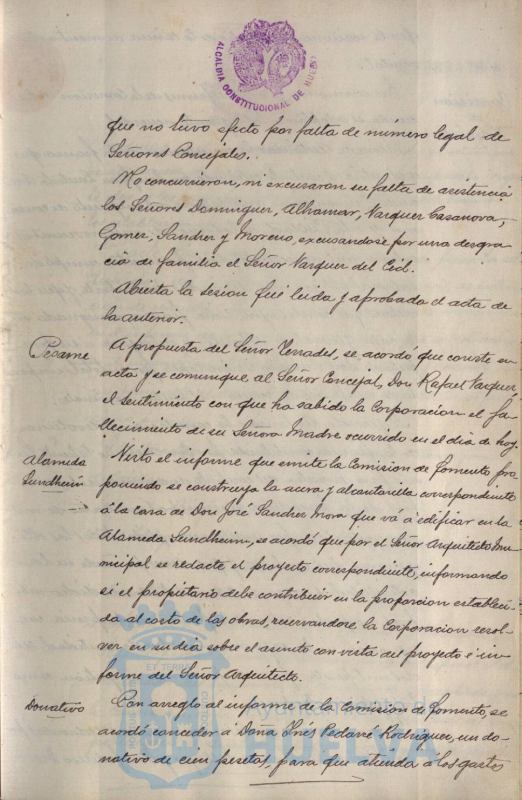 ALCALDÍA CONSTITUCIONAL DE HUELVA
que no tuvo efecto por falta de número legal de
Señores Concejales.
No concurrieron, ni excusaron su falta de asistencia
los Señores Dominguez, Alhamar, Vazquez Casanova,
Gomez, Sanchez y Moreno, excusandose por una desgra-
cia de familia el Señor Vazquez del Cid.
Abierta la sesion fué leida y aprobada el acta de
la anterior.
Pésame
A propuesta del Señor Terrades, se acordó que conste en
acta y se comunique al Señor Concejal, Don Rafael Vazquez,
el sentimiento con que ha sabido la Corporacion el fa-
llecimiento de su Señora Madre ocurrido en el dia de hoy.
Alameda
Sundheim
Visto el informe que emite la Comision de Fomento pro
poniendo se construya la acera y alcantarilla correspondiente
á la casa de Don José Sanchez Mora que vá á edificar en la
Alameda Sundheim, se acordó que por el Señor Arquitecto Mu-
nicipal se redacte el proyecto correspondiente, informando
si el propietario debe contribuir en la proporcion estableci-
da al costo de las obras, reservandose la Corporacion resol-
ver en su dia sobre el asunto con vista del proyecto é in-
forme del Señor Arquitecto.
Donativo
Con arreglo al informe de la Comision de Fomento, se
acordó conceder á Doña Inés Pedarré Rodriguez, un do-
nativo de cien pesetas, para que atienda á los gastos
HUELVA